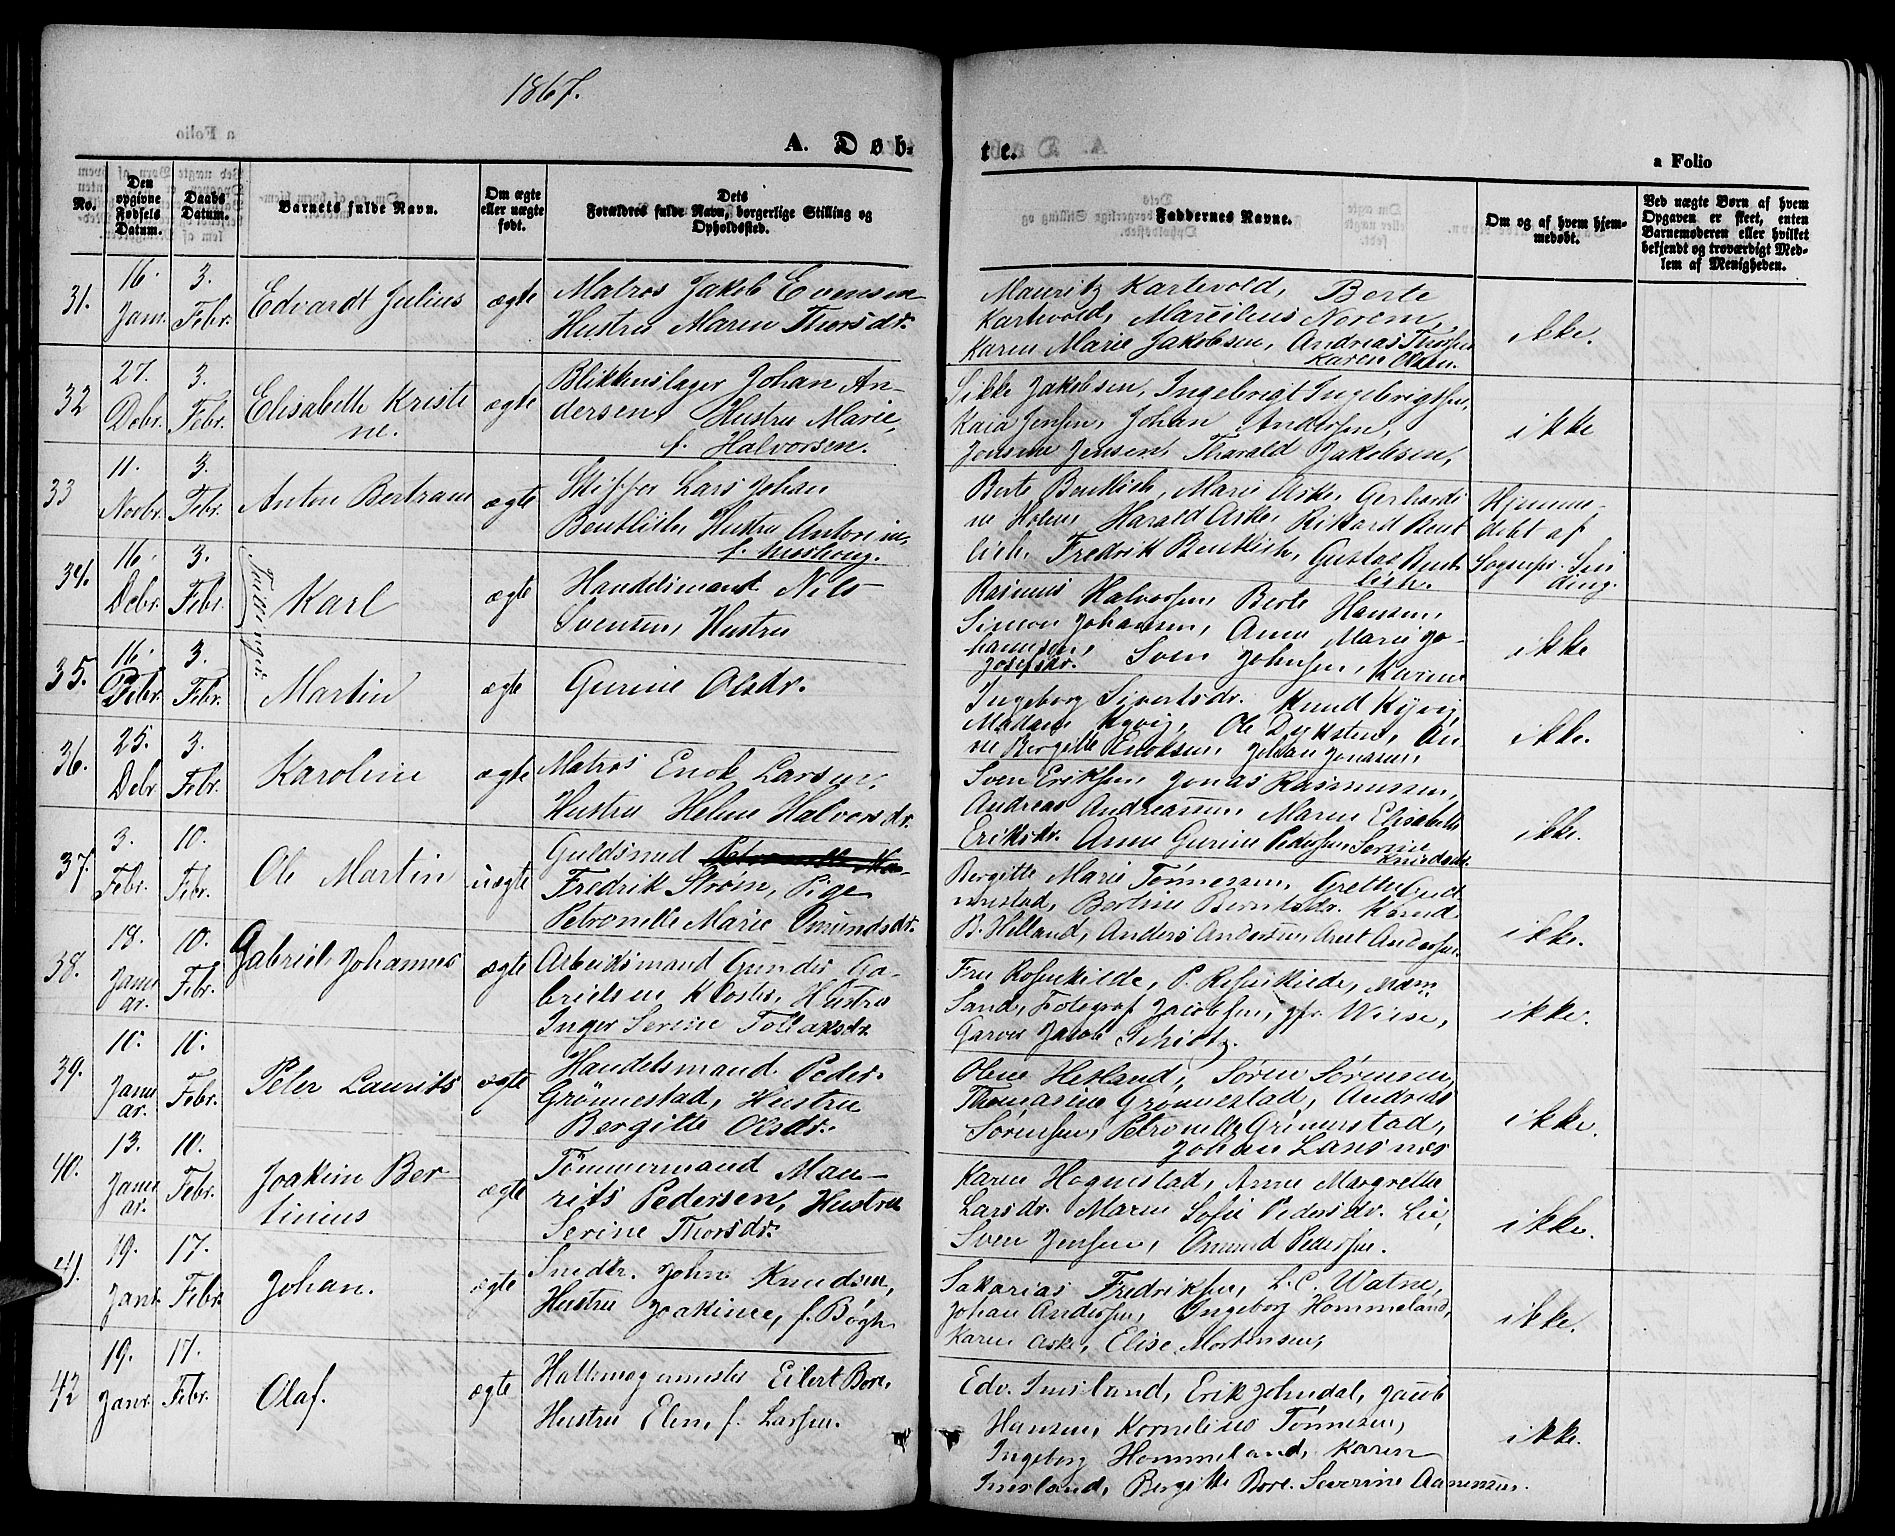 1867.
A. Døb-
te.
a Folio
No.
Den opgivne Fødsels Datum.
Daabs Datum.
Barnets fulde Navn.
Om ægte eller uægte født.
Dets Forældres fulde Navn, borgerlige Stilling og Opholdssted.
Faddernes Navne.
Om og af hvem hjemmedøbt.
Ved uægte Børn af hvem Opgaven er skeet, enten Barnemoderen eller hvilket bekjendt og troværdigt Medlem af Menigheden.
31. 16. Janr. 3. Febr. Edvardt Julius ægte
Matros Jakob Evensen
Hustru Maren Thorsdr.
Mauritz Kartevold, Berte
Kartevold, Marcilius Norem,
Karen Marie Jakobsen, Andreas Thorsen
Karen Olsen.
ikke.
32 27. Debr. 3. Febr. Elisabeth Kristi
ne.
ægte
Blikkenslager Johan An-
dersen, Hustru Marie,
f. Halvorsen.
Sikke Jakobsen, Ingebrigt Ingebrigtsen,
Kaia Jensen, Johan Andersen,
Jensine Jensen, Tharald Jakobsen,
ikke
33 11. Novbr. 3. Febr. Anton Bertram ægte
Skipper Lars Johan
Bentlich, Hustru Antonine
Berte Bentlich, Marie Aske, Gerhardi
ne Holen, Harald Aske, Rikard Bent
lich, Fredrik Bentlich, Gustav Bent
lich.
Hjemme
døbt af
Sognepr. Sin
ding.
34. 16. Debr. 3. Febr. Tvillinger Karl ægte
Handelsmand Nils
Svensen, Hustru
Rasmus Halvorsen, Berte Hansen,
Simon Johansen, Anne Marie Jo-
hannesen, Sven Johnsen, Karen
Josefsdr.
ikke
35. 16. Debr. 3. Febr. Martin ægte
Gurine Olsdr.
Ingeborg Sivertsdr. Knud Kyvig,
Madam Kyvig, Ole Dyksten, An
ne Bergitte Eriksen, Johan Jonassen,
ikke.
36. 25. Debr 3. Febr. Karoline ægte
Matros Enok Larsen,
Hustru Helene Halvorsdr.
Sven Eriksen, Jonas Rasmussen,
Andreas Andreassen, Maren Elisabeth
Eriksdr. Anne Gurine Pedersen, Serine
Knudsdr.
ikke.
37. 3. Febr. 10. Febr. Ole Martin uægte
Guldsmed
Fredrik Strøm, Pige
Petronelle Marie Omundsdr.
Bergitte Marie Tønnessen, Grethe Gud
mestad, Bertine Berntsdr. Knud
B. Helland, Anders Andersen, Aret Andersen.
ikke.
38. 18. Janu
ar. 10. Febr. Gabriel Johannes ægte
Arbeidsmand Gunder Ga-
brielsen Kloster, Hustru
Inger Serine Tollaksdr.
Fru Rosenkilde, P. Rosenkilde, Mam.
Sand, Fotograf Jacobsen, Wiese,
Garver Jacob Schiøtz.
ikke.
39. 10. Janu
ar. 10. Febr. Peter Laurits ægte
Handelsmand Peder
Grønnestad, Hustru
Bergitte Olsdr.
Olene Hesland, Søren Sørensen,
Thomasine Grønnestad, Andreas
Sørensen, Petronelle Grønnestad,
Johan Lansnes
ikke.
40. 13. Janu
ar. 10. Febr. Joakim Ber-
tinius
ægte
Tømmermand Mau-
rits Pedersen, Hustru
Serine Thorsdr.
Karen Hognestad, Anne Margrethe
Larsdr. Maren Sofie Pedersdr. Lie,
Sven Jensen, Omund Pedersen.
ikke.
41. 19. Janr. 17. Febr. Johan. ægte
Snedkr. John Knudsen,
Hustru Joakine, f. Bøgh.
Sakarias Fredriksen, L. C. Watne,
Johan Andersen, Ingeborg Hommeland,
Karen Aske, Elise Mortensen,
ikke.
42 19. Janr. 17. Febr. Olaf. ægte
Hattemagermester Eilert Bore,
Hustru Elen, f. Larsen.
Edv. Imsland, Erik Johndal, Jacob
Hansen, Kornelius Tønnesen,
Ingeborg Hommeland, Karen
Imsland, Bergitte Bore. Severine Aanensen.
ikke.